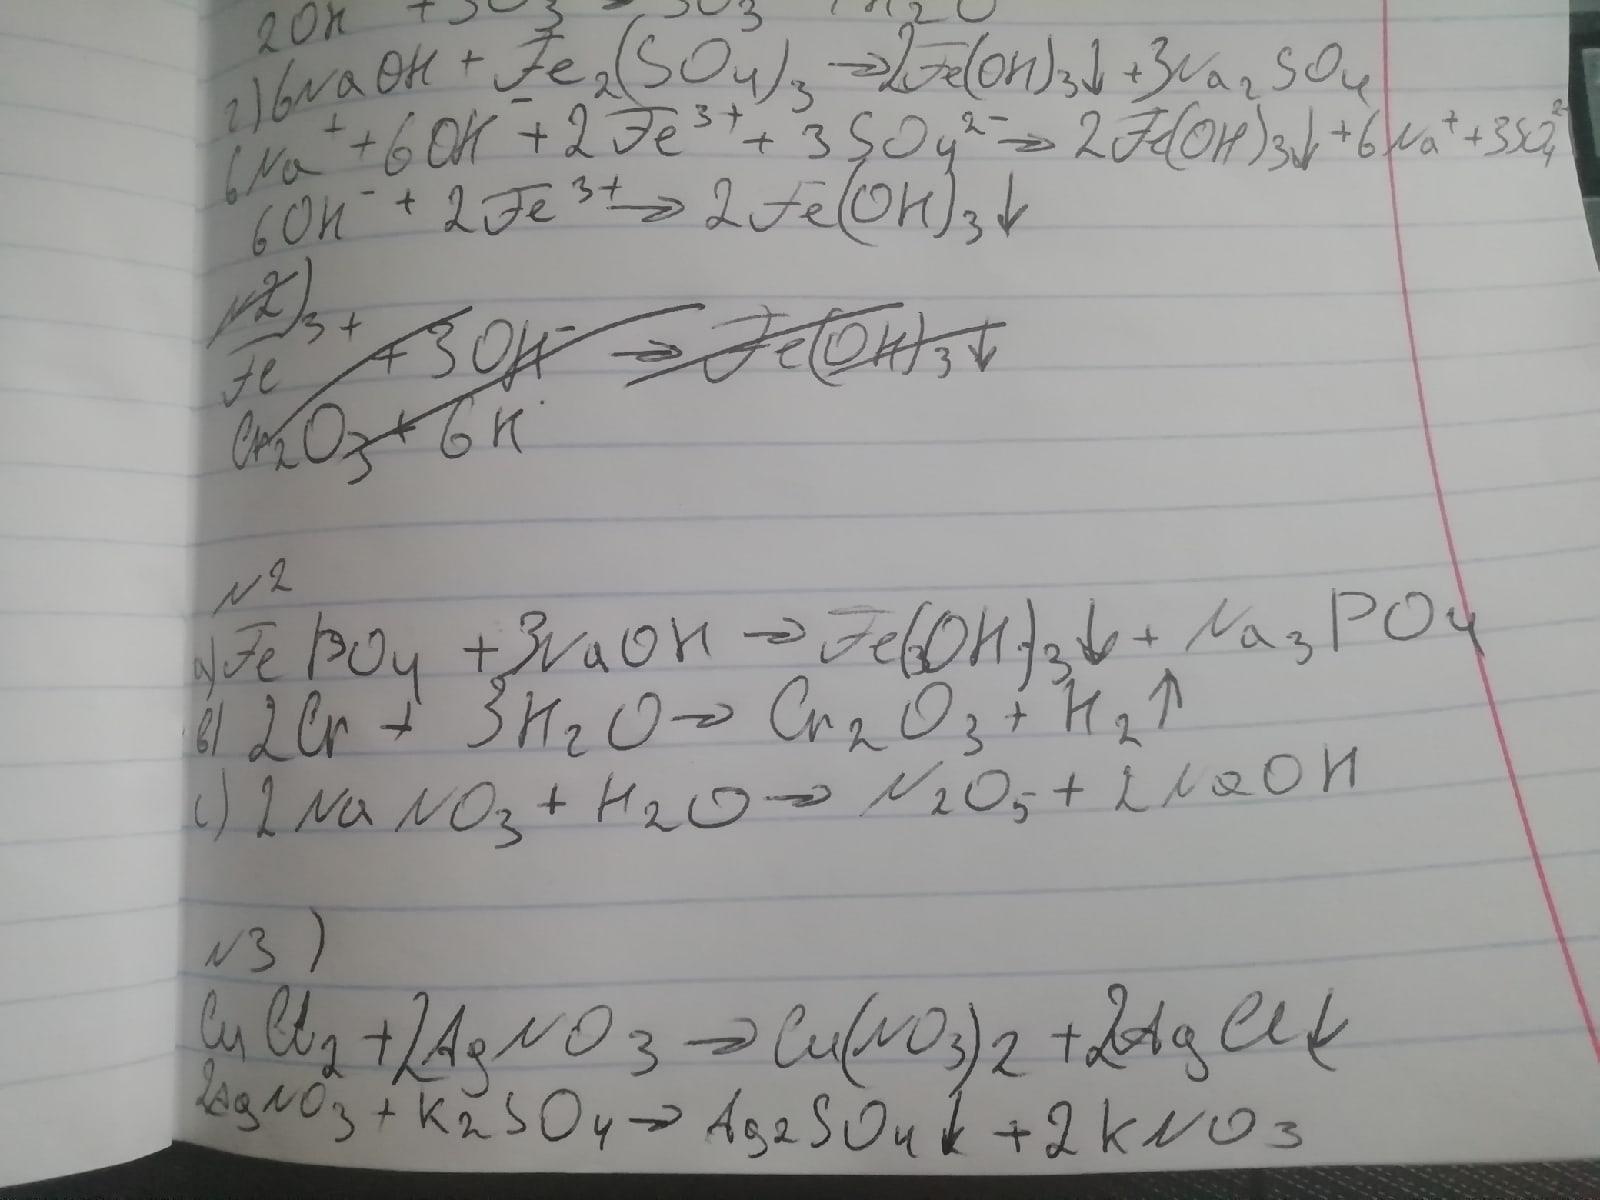 2OH⁻ + SO₃ → SO₃ H₂O
г) 6NaOH + Fe₂(SO₄)₃ → 2Fe(OH)₃↓ + 3Na₂SO₄
6Na⁺ + 6OH⁻ + 2Fe³⁺ + 3SO₄²⁻ → 2Fe(OH)₃↓ + 6Na⁺ + 3SO₄²⁻
6OH⁻ + 2Fe³⁺ → 2Fe(OH)₃↓
№2)
Fe³⁺ + 3OH⁻ → Fe(OH)₃↓
Cr₂O₃ + 6H
№2
a) FePO₄ + 3NaOH → Fe(OH)₃↓ + Na₃PO₄
в) 2Cr + 3H₂O → Cr₂O₃ + H₂↑
c) 2NaNO₃ + H₂O → N₂O₅ + 2NaOH
№3)
CuCl₂ + 2AgNO₃ → Cu(NO₃)₂ + 2AgCl↓
2AgNO₃ + K₂SO₄ → Ag₂SO₄↓ + 2KNO₃